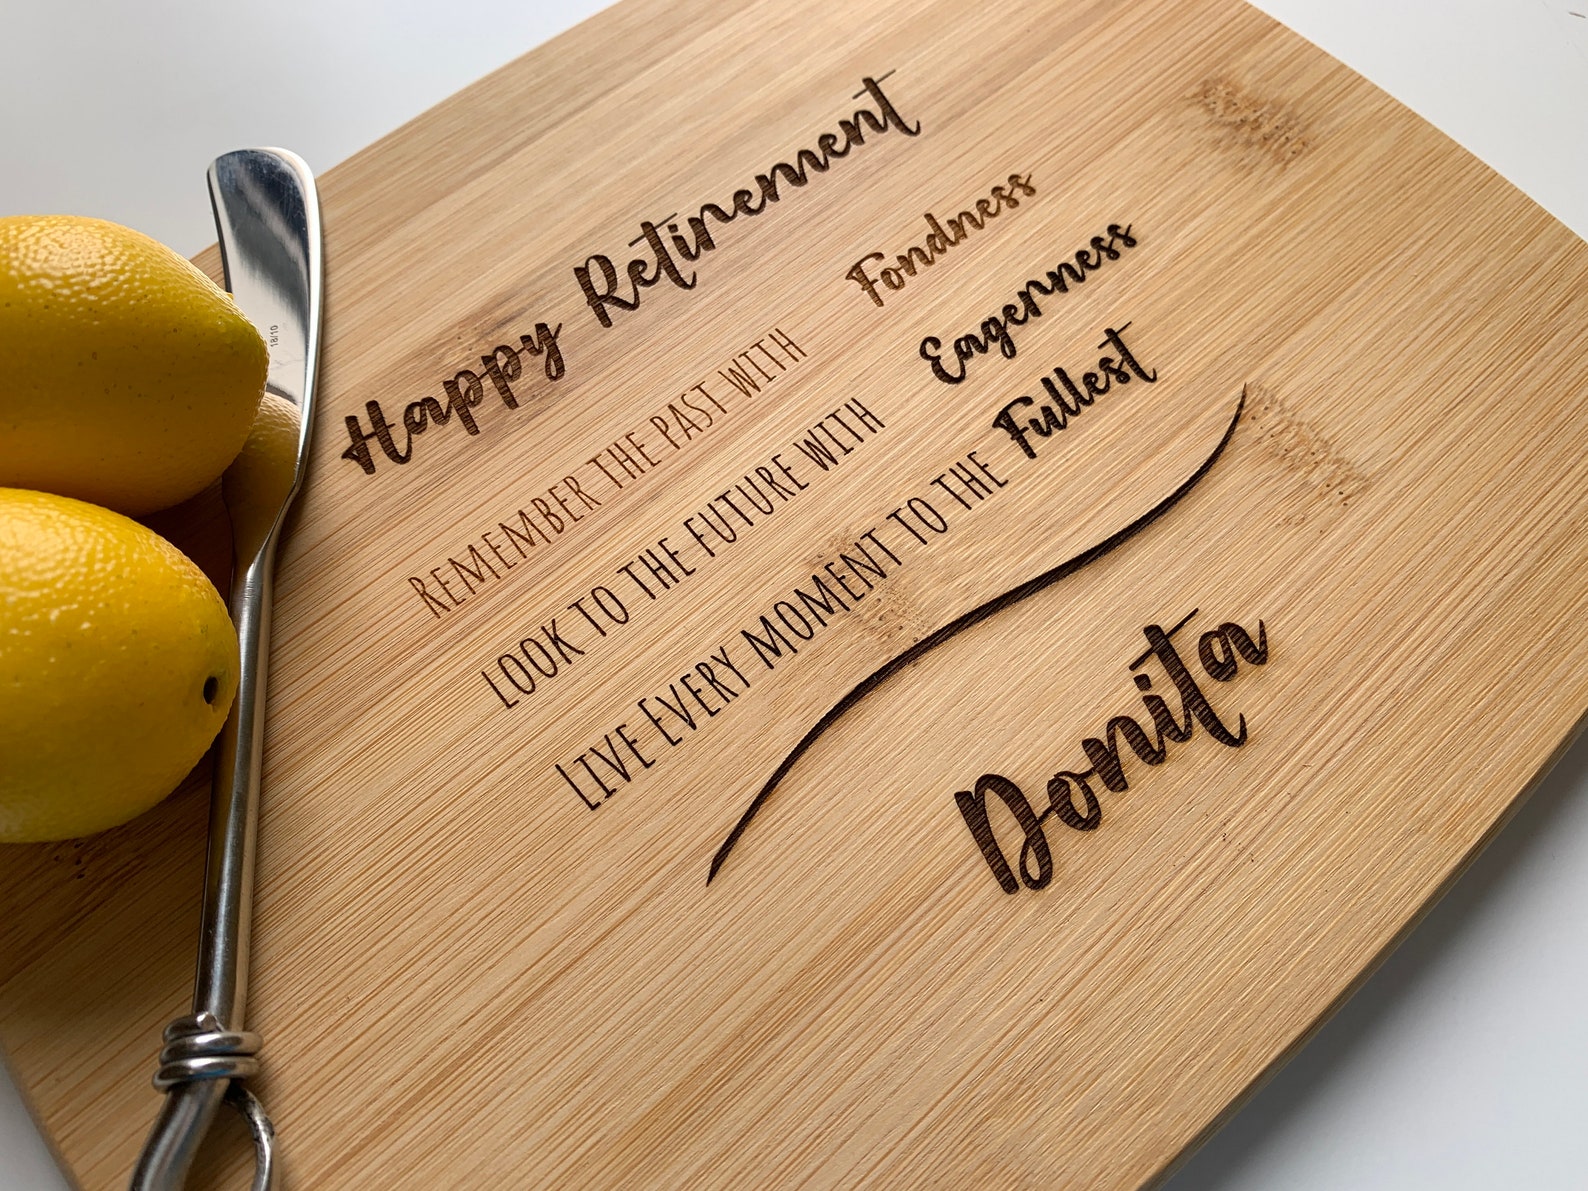 Happy Retirement
REMEMBER THE PAST WITH Fondness
LOOK TO THE FUTURE WITH Eagerness
LIVE EVERY MOMENT TO THE Fullest
Donita
18/10